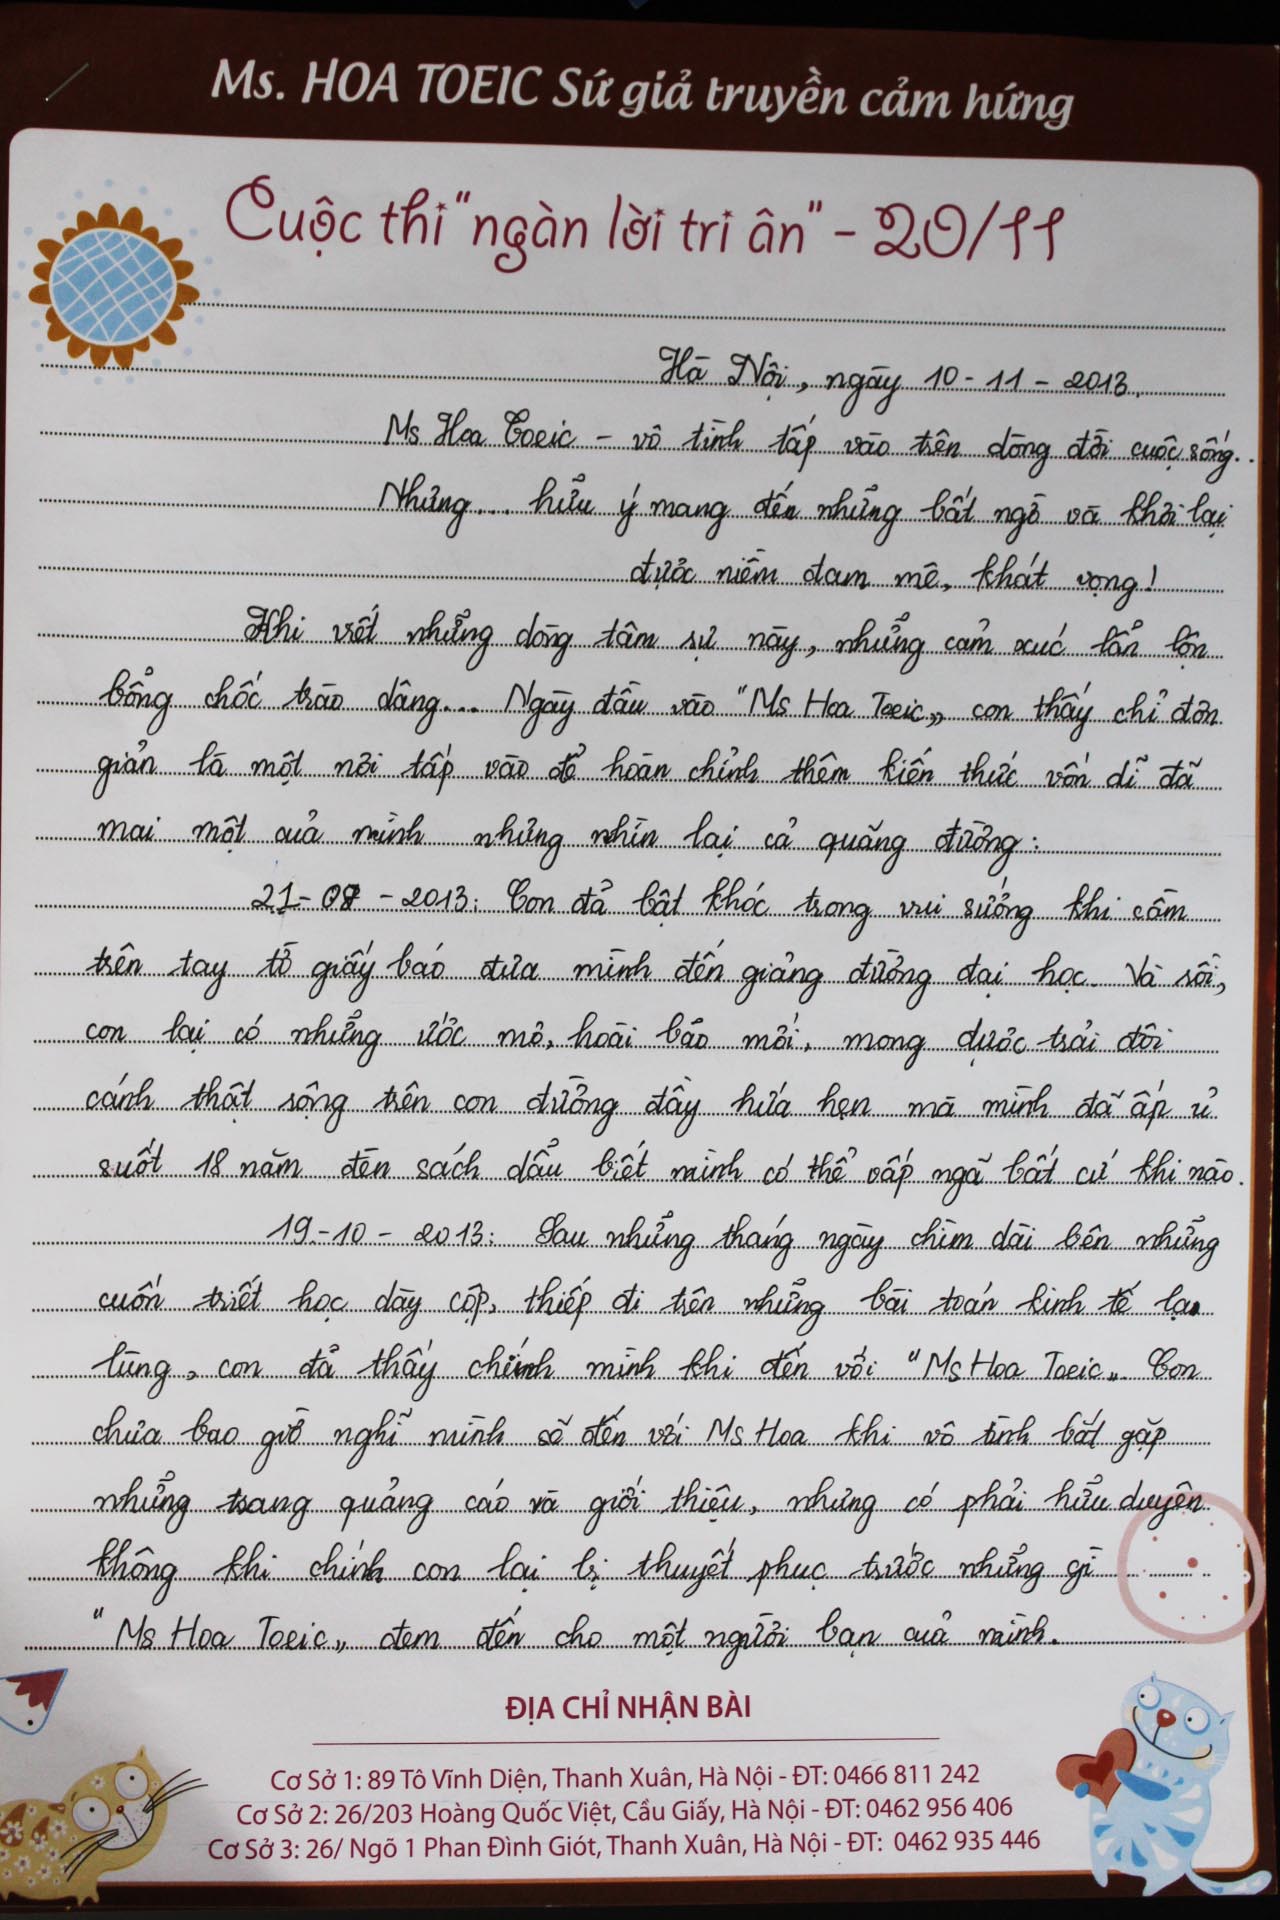 Ms. HOA TOEIC Sứ giả truyền cảm hứng
Cuộc thi "ngàn lời tri ân" - 20/11
Hà Nội, ngày 10-11-2013.
Ms Hoa Toeic - vô tình tấp vào trên dòng đời cuộc sống..
Nhưng... hữu ý mang đến những bất ngờ và khơi lại
được niềm đam mê, khát vọng!
Khi viết những dòng tâm sự này, những cảm xúc lẫn lộn
bỗng chốc trào dâng... Ngày đầu vào "Ms Hoa Toeic„ con thấy chỉ đơn
giản là một nơi tấp vào để hoàn chỉnh thêm kiến thức vốn dĩ đã
mai một của mình nhưng nhìn lại cả quãng đường:
21-08-2013: Con đã bật khóc trong vui sướng khi cầm
trên tay tờ giấy báo đưa mình đến giảng đường đại học. Và rồi,
con lại có những ước mơ, hoài bão mới, mong được trải đôi
cánh thật rộng trên con đường đầy hứa hẹn mà mình đã ấp ủ
suốt 18 năm đèn sách dẫu biết mình có thể vấp ngã bất cứ khi nào.
19-10-2013: Sau những tháng ngày chìm dài bên những
cuốn triết học dày cộp, thiếp đi trên những bài toán kinh tế lạ
lùng, con đã thấy chính mình khi đến với "Ms Hoa Toeic„. Con
chưa bao giờ nghĩ mình sẽ đến với Ms Hoa khi vô tình bắt gặp
những trang quảng cáo và giới thiệu, nhưng có phải hữu duyên
không khi chính con lại bị thuyết phục trước những gì
"Ms Hoa Toeic„ đem đến cho một người bạn của mình.
ĐỊA CHỈ NHẬN BÀI
Cơ Sở 1: 89 Tô Vĩnh Diện, Thanh Xuân, Hà Nội - ĐT: 0466 811 242
Cơ Sở 2: 26/203 Hoàng Quốc Việt, Cầu Giấy, Hà Nội - ĐT: 0462 956 406
Cơ Sở 3: 26/ Ngõ 1 Phan Đình Giót, Thanh Xuân, Hà Nội - ĐT: 0462 935 446